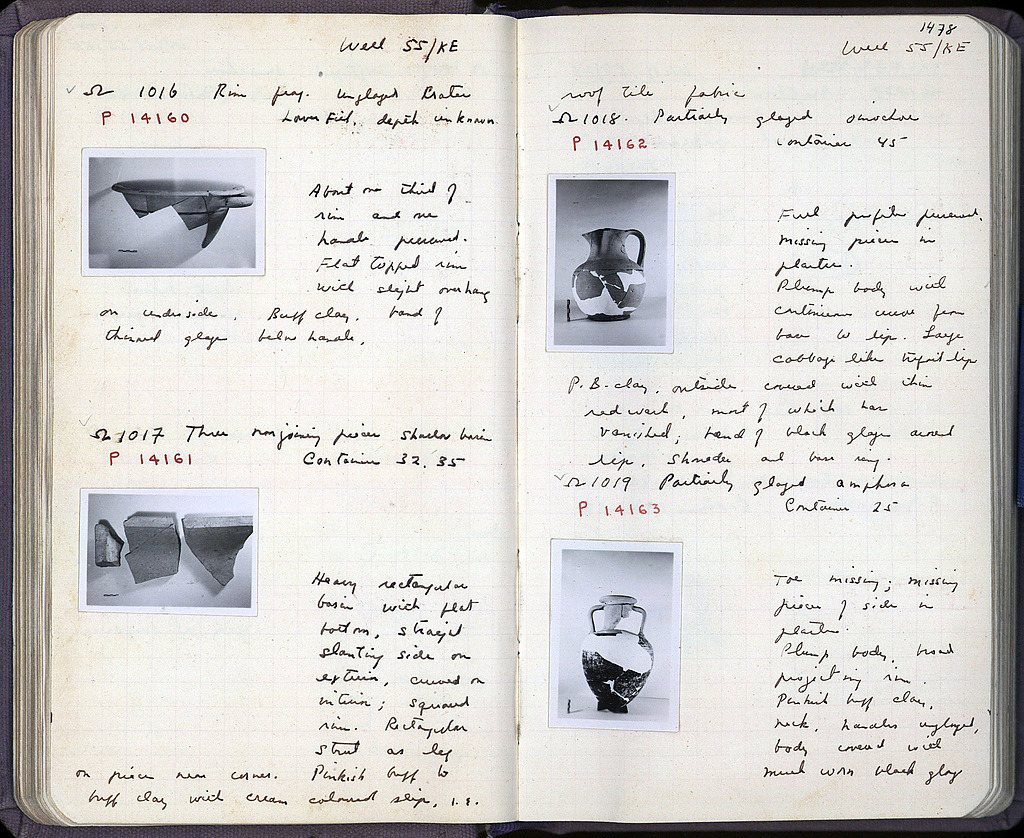 Well SS/KE
Ω 1016 Rim frag. Unglazed Krater
P 14160 Lower Fill, depth unknown
About one third of
rim and one
handle preserved.
Flat topped rim
with slight overhang
on underside. Buff clay, band of
thinned glaze below handle.
Ω 1017 Three nonjoining pieces shallow basin
P 14161 Container 32, 35
Heavy rectangular
basin with flat
bottom, straight
slanting side on
exterior, curved on
interior; squared
rim. Rectangular
strut as leg
on piece near corner. Pinkish buff to
buff clay with cream coloured slip, i.e.
1478
Well SS/KE
roof tile fabric
Ω 1018. Partially glazed oinochoe
P 14162 Container 45
Full profile preserved.
Missing pieces in
plaster.
Plump body with
continuous curve from
base to lip. Large
cabbage like trefoil lip
P.B. clay, outside covered with thin
red wash, most of which has
vanished; band of black glaze around
lip, shoulder and base ring.
Ω 1019 Partially glazed amphora
P 14163 Container 25
Toe missing; missing
pieces of side in
plaster.
Plump body, broad
projecting rim.
Pinkish buff clay,
neck, handles unglazed,
body covered with
much worn black glaze